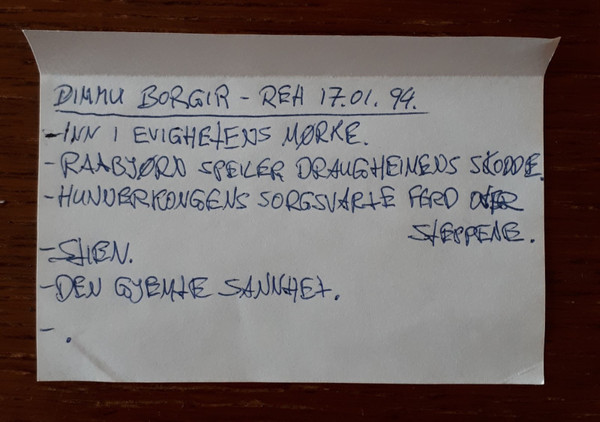 DIMMU BORGIR - REH 17.01.94.
- INN I EVIGHETENS MØRKE.
- RAABJØRN SPEILER DRAUGHEIMENS SKODDE.
- HUNNERKONGENS SORGSVARTE FERD OVER
STEPPENE.
- STIEN.
- DEN GJEMTE SANNHET.
- .